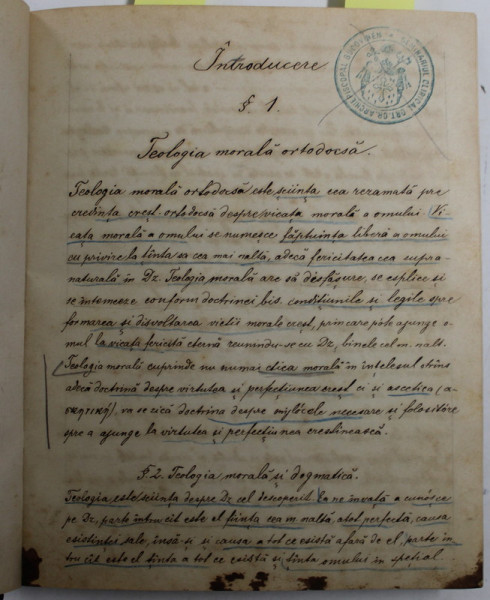 Întroducere
§. 1.
Teologia morală ortodocsă.
Teologia morală ortodocsă este sciința cea rezamată pre
credința creșt. ortodocsă despre vieața morală a omului. Vi-
eața morală a omului se numesce făptuința liberă a omului
cu privire la ținta sa cea mai naltă, adecă fericitatea cea supra-
naturală în Dz. Teologia morală are să desfășure, se esplice și
se întemeze conform doctrinei bis. condițiunile și legile spre
formarea și disvoltarea vieții morale creșt, prin care pôte ajunge o-
mul la vieața fericită eternă reunindu-se cu Dz, binele cel m. nalt.
Teologia morală cuprinde nu numai etica morală în înțelesul strîns
adecă doctrină despre virtutea și perfecțiunea creșt. ci și ascetica (ἀ-
σκητική), va se zică doctrina despre mijlôcele necesare și folositôre
spre a ajunge la virtutea și perfecțiunea creștinească.
§. 2. Teologia morală și dogmatică.
Teologia este sciința despre Dz cel descoperit la ne învață a cunôsce
pe Dz, parte întru cît este el ființa cea m. naltă, atot perfectă, causa
esistinței sale, însă-și și causa a tot ce esistă afară de el, parte în
tru cît este el ținta a tot ce esistă și ținta omului în spețial.